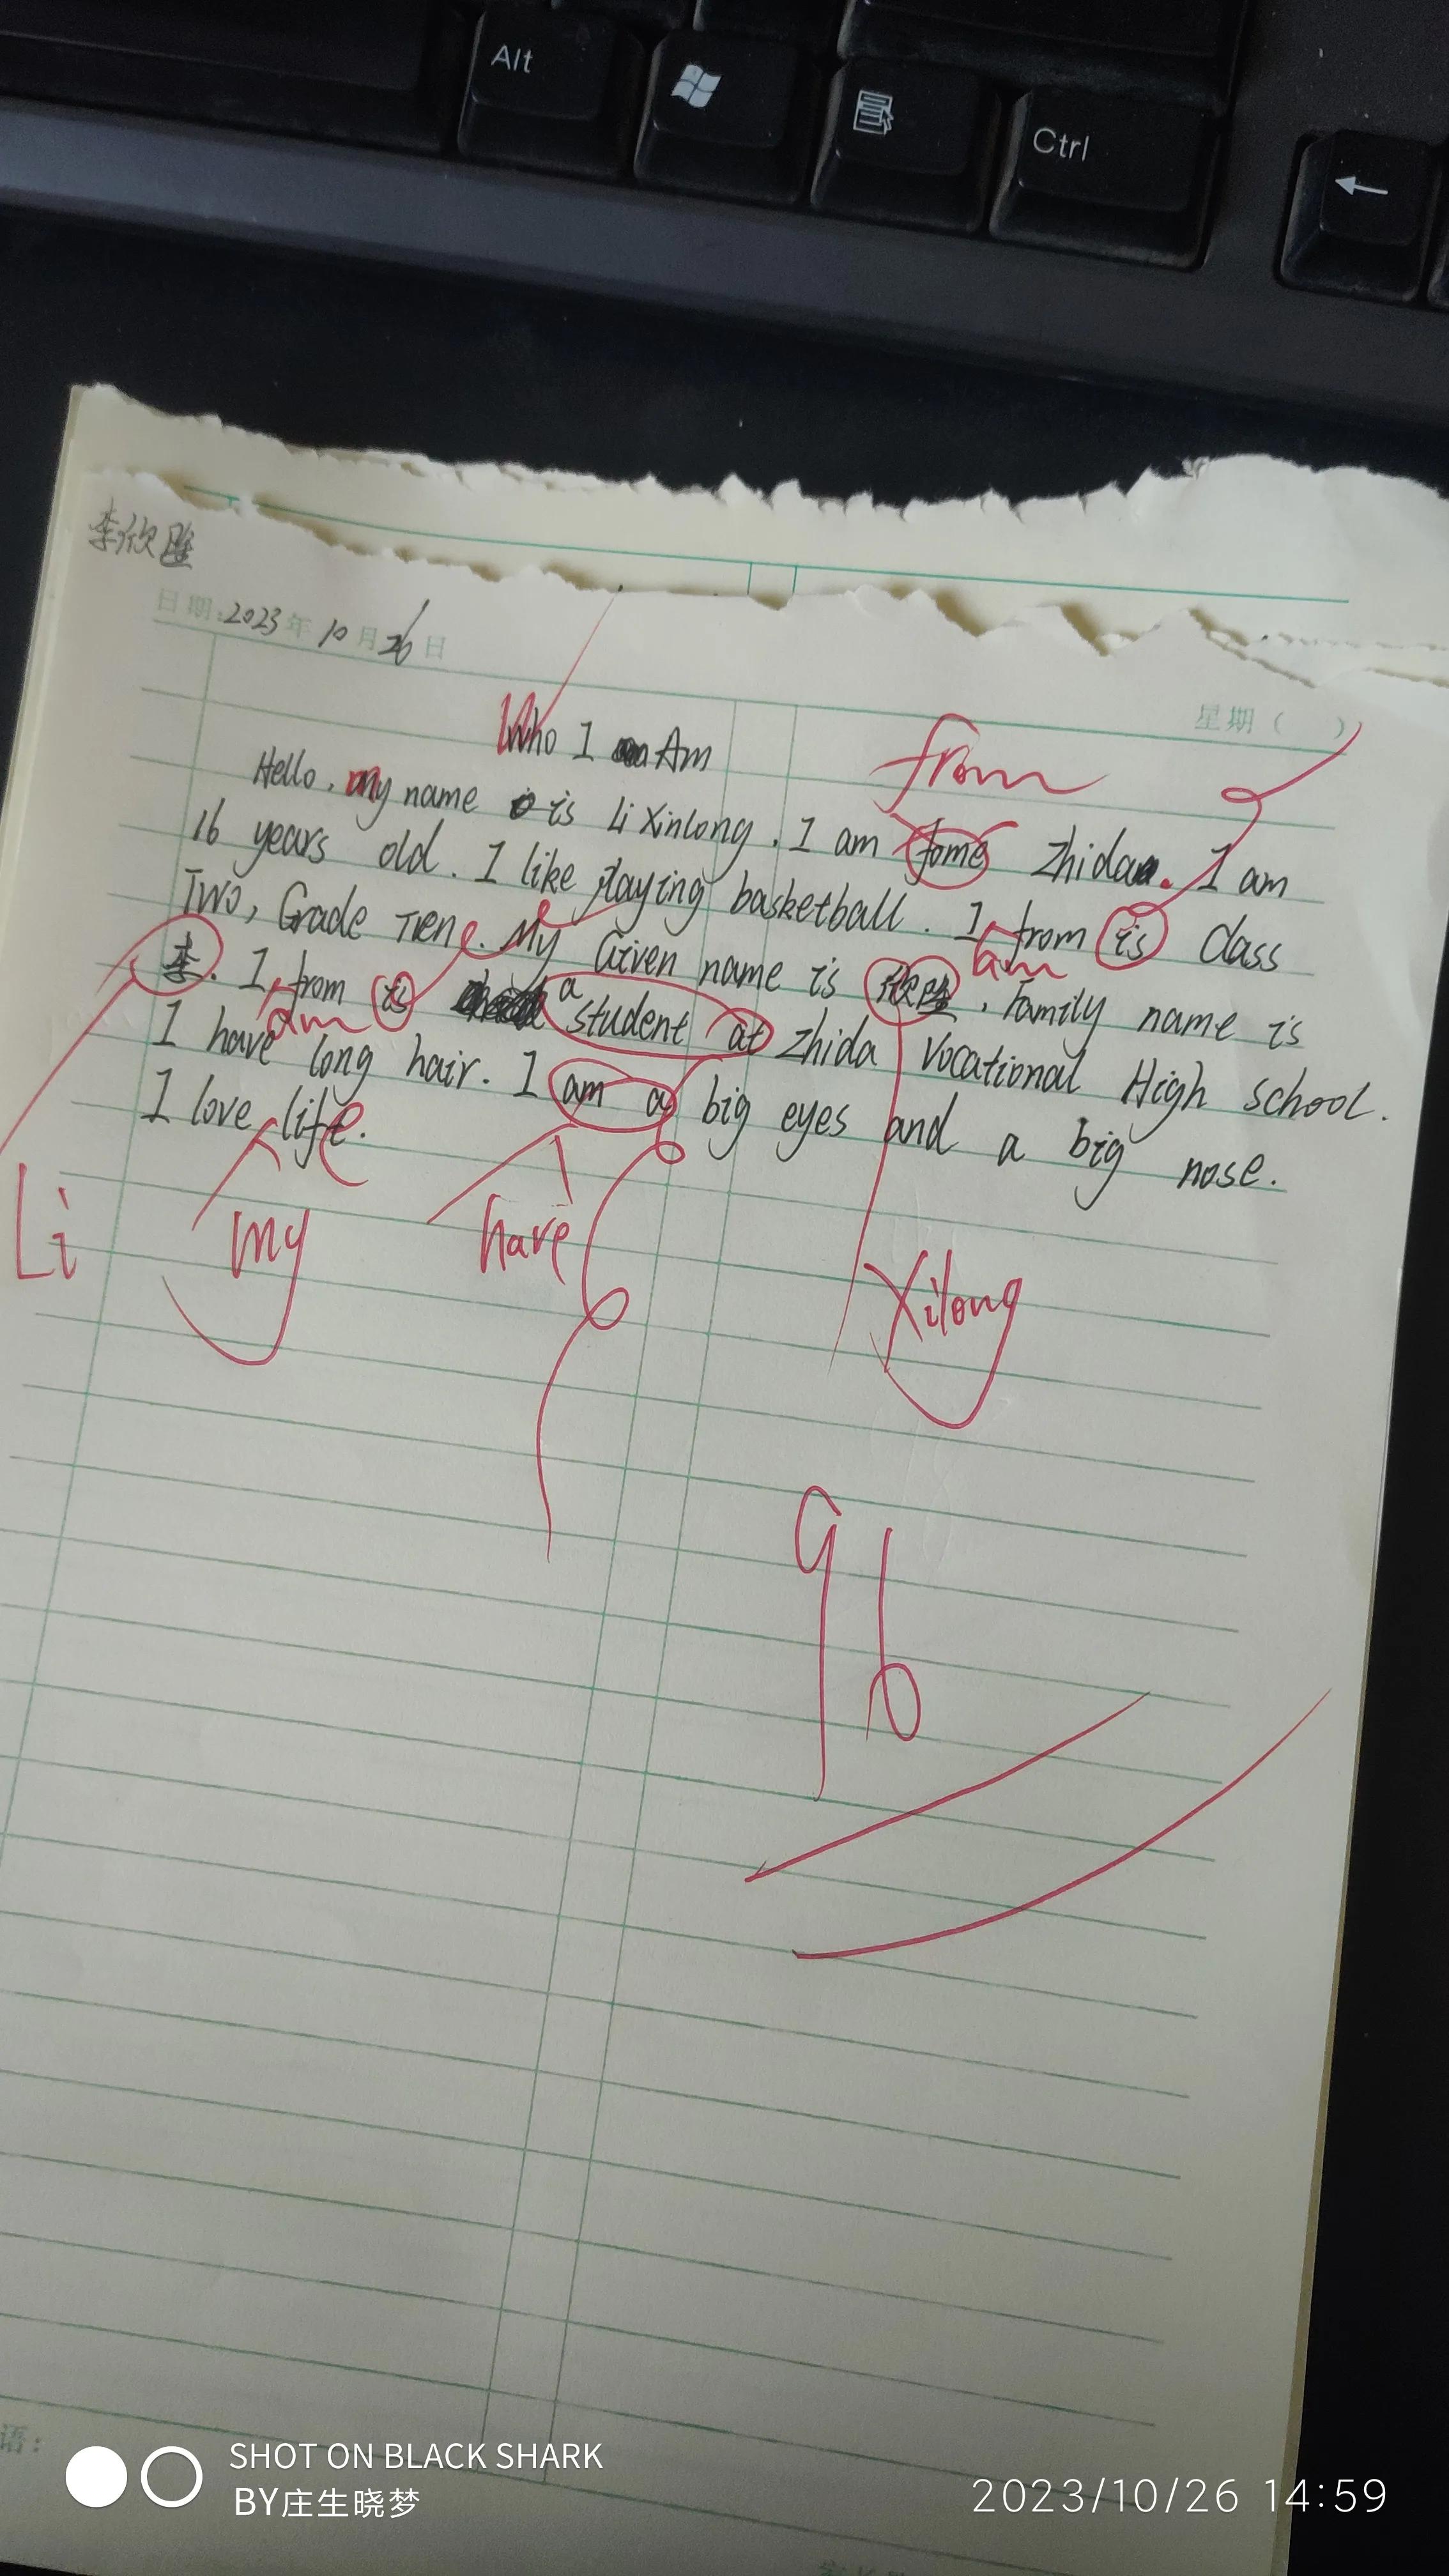 Alt
Ctrl
李欣隆
日期:2023年10月26日
星期( )
Who I Am
from
Hello, my name is Li Xinlong. I am fome Zhida. I am
16 years old. I like playing basketball. I from is Class
am
Two, Grade Tene. My Given name is 欣隆, Family name is
李. I from is a student at Zhida Vocational High school.
am
I have long hair. I am a big eyes and a big nose.
I love life.
Li
my
have
Xilong
96
语:
SHOT ON BLACK SHARK
BY庄生晓梦
2023/10/26 14:59